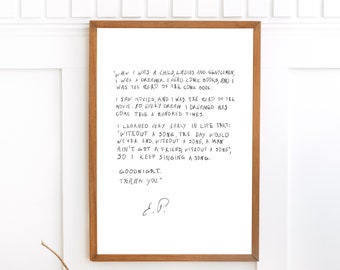 "WHEN I WAS A CHILD, LADIES AND GENTLEMEN,
I WAS A DREAMER. I READ COMIC BOOKS, AND I
WAS THE HERO OF THE COMIC BOOK.
I SAW MOVIES, AND I WAS THE HERO OF THE
MOVIE. SO EVERY DREAM I DREAMED HAS
COME TRUE A HUNDRED TIMES.
I LEARNED VERY EARLY IN LIFE THAT:
'WITHOUT A SONG, THE DAY WOULD
NEVER END, WITHOUT A SONG, A MAN
AIN'T GOT A FRIEND, WITHOUT A SONG',
SO I KEEP SINGING A SONG.
GOODNIGHT.
THANK YOU."
E.P.